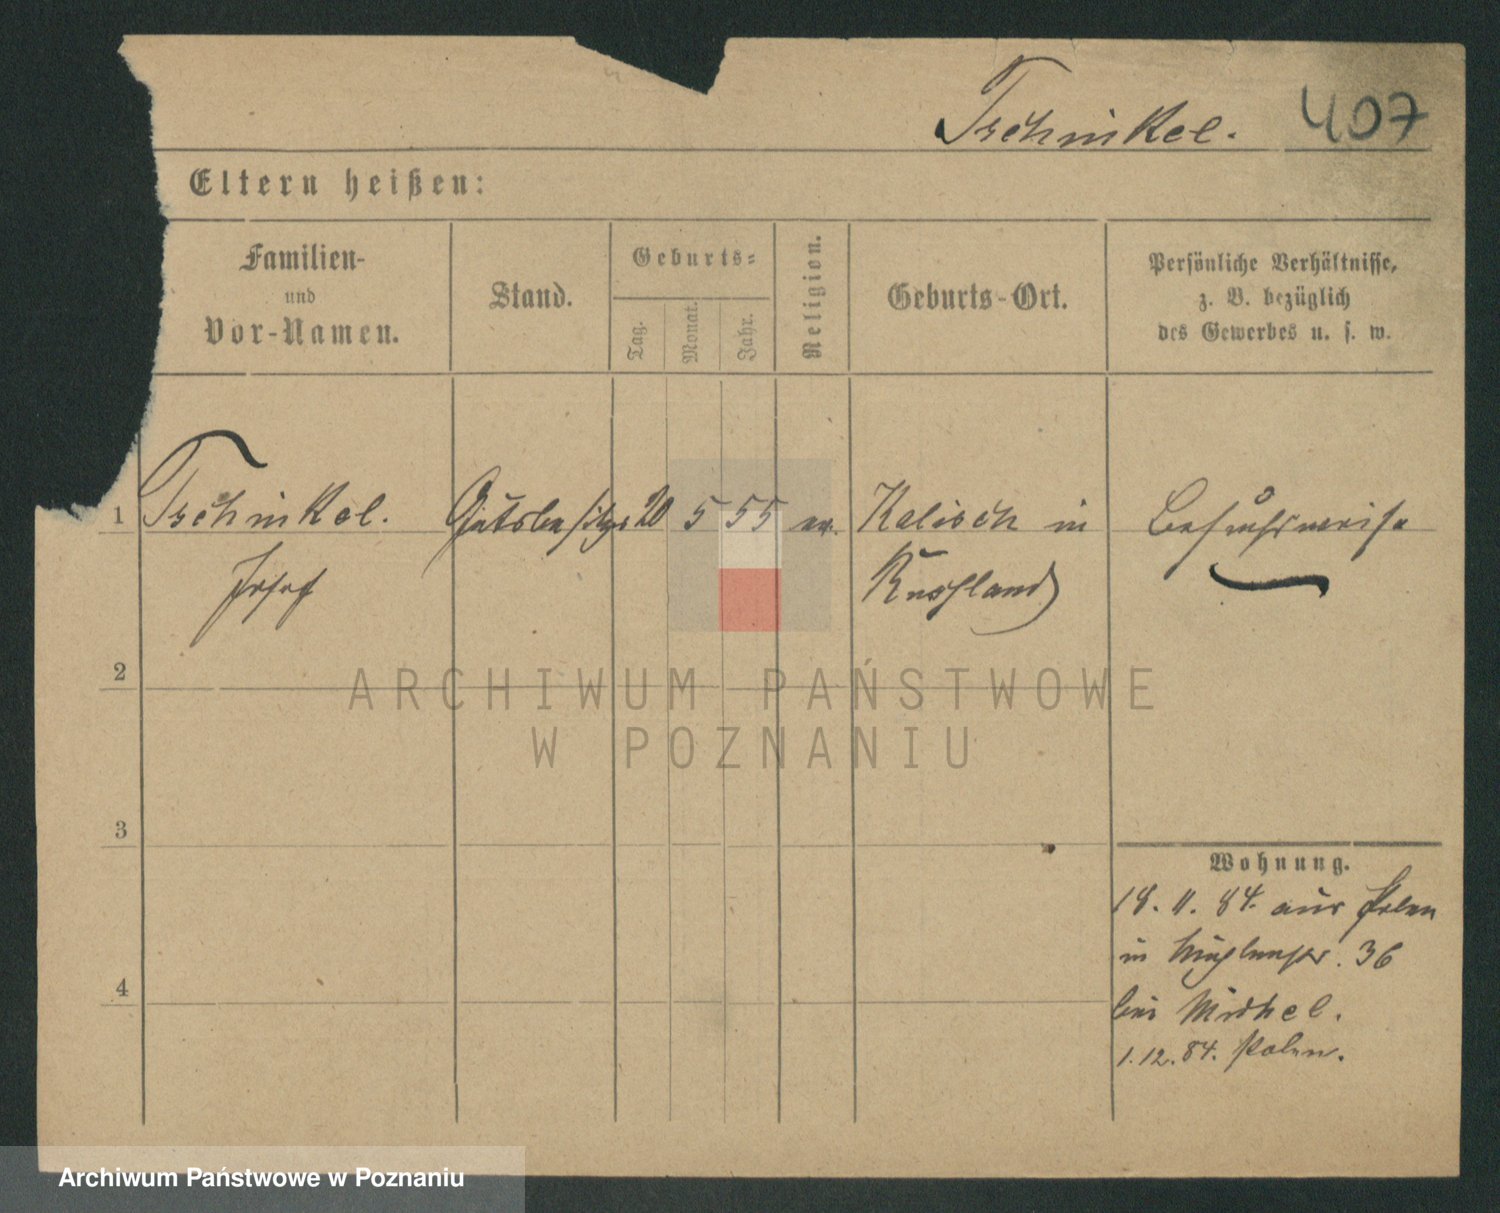 Tschinkel. 407
Eltern heißen:
Familien-
und
Vor-Namen.
Stand.
Geburts-
Tag.
Monat.
Jahr.
Religion.
Geburts-Ort.
Persönliche Verhältnisse,
z. B. bezüglich
des Gewerbes u. s. w.
1 Tschinkel. Gutsbesitzer 20 5 55 ev. Kalisch in Besuchsweise
Josef Russland
2
ARCHIWUM PAŃSTWOWE
W POZNANIU
3
Wohnung.
18. 11. 84. aus Polen
in 36
4
bei Michel.
1. 12. 84. Polen.
Archiwum Państwowe w Poznaniu